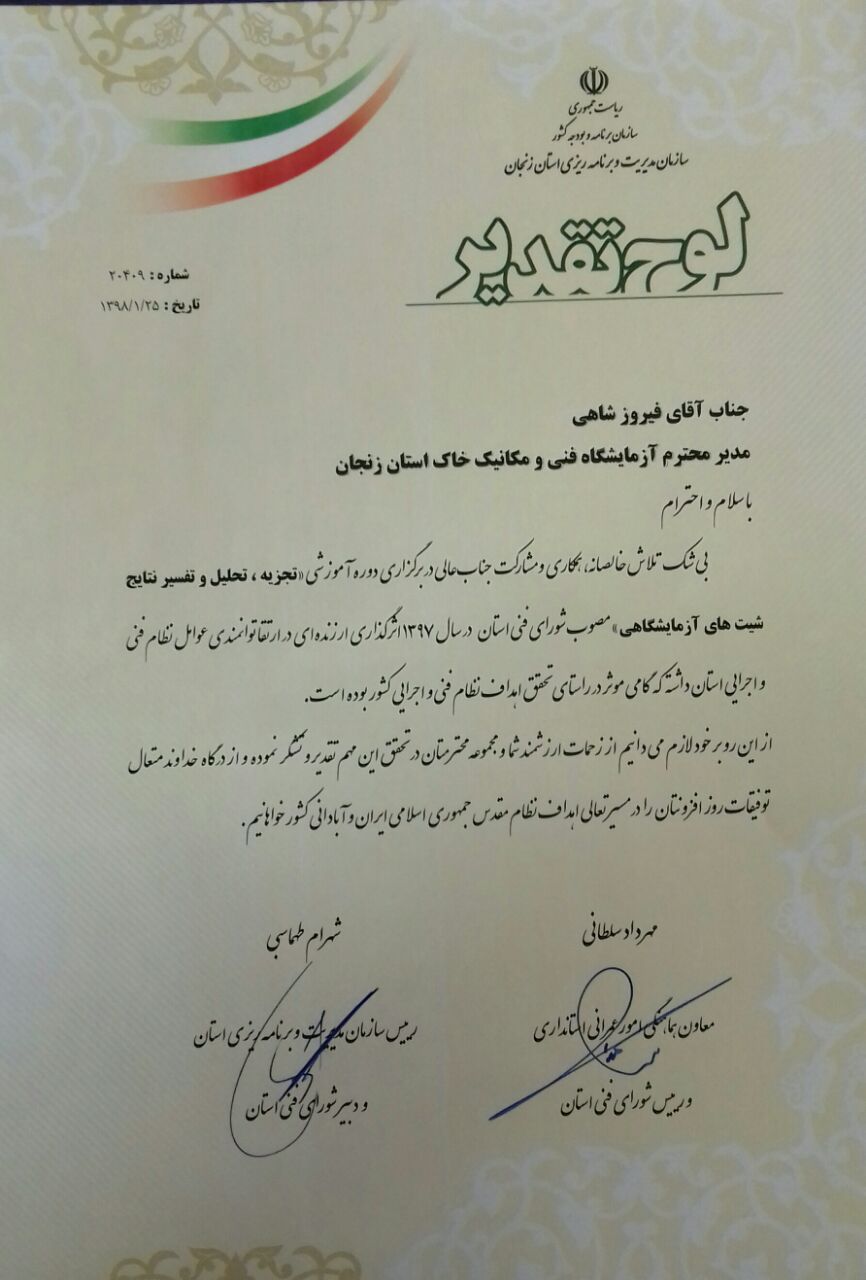 ریاست جمهوری
سازمان برنامه و بودجه کشور
سازمان مدیریت و برنامه ریزی استان زنجان
لوح تقدیر
شماره : ۲۰۴۰۹
تاریخ : ۱۳۹۸/۱/۲۵
جناب آقای فیروز شاهی
مدیر محترم آزمایشگاه فنی و مکانیک خاک استان زنجان
با سلام و احترام
بی شک تلاش خالصانه، همکاری و مشارکت جناب عالی در برگزاری دوره آموزشی «تجزیه ، تحلیل و تفسیر نتایج
شیت های آزمایشگاهی» مصوب شورای فنی استان در سال ۱۳۹۷ اثرگذاری ارزنده ای در ارتقا توانمندی عوامل نظام فنی
و اجرایی استان داشته که گامی موثر در راستای تحقق اهداف نظام فنی و اجرایی کشور بوده است.
از این رو بر خود لازم می دانیم از زحمات ارزشمند شما و مجموعه محترمتان در تحقق این مهم تقدیر و تشکر نموده و از درگاه خداوند متعال
توفیقات روز افزونتان را در مسیر تعالی اهداف نظام مقدس جمهوری اسلامی ایران و آبادانی کشور خواهانیم.
مهرداد سلطانی
معاون هماهنگی امور عمرانی استانداری
و رییس شورای فنی استان
شهرام طهماسبی
رییس سازمان مدیریت و برنامه ریزی استان
و دبیر شورای فنی استان